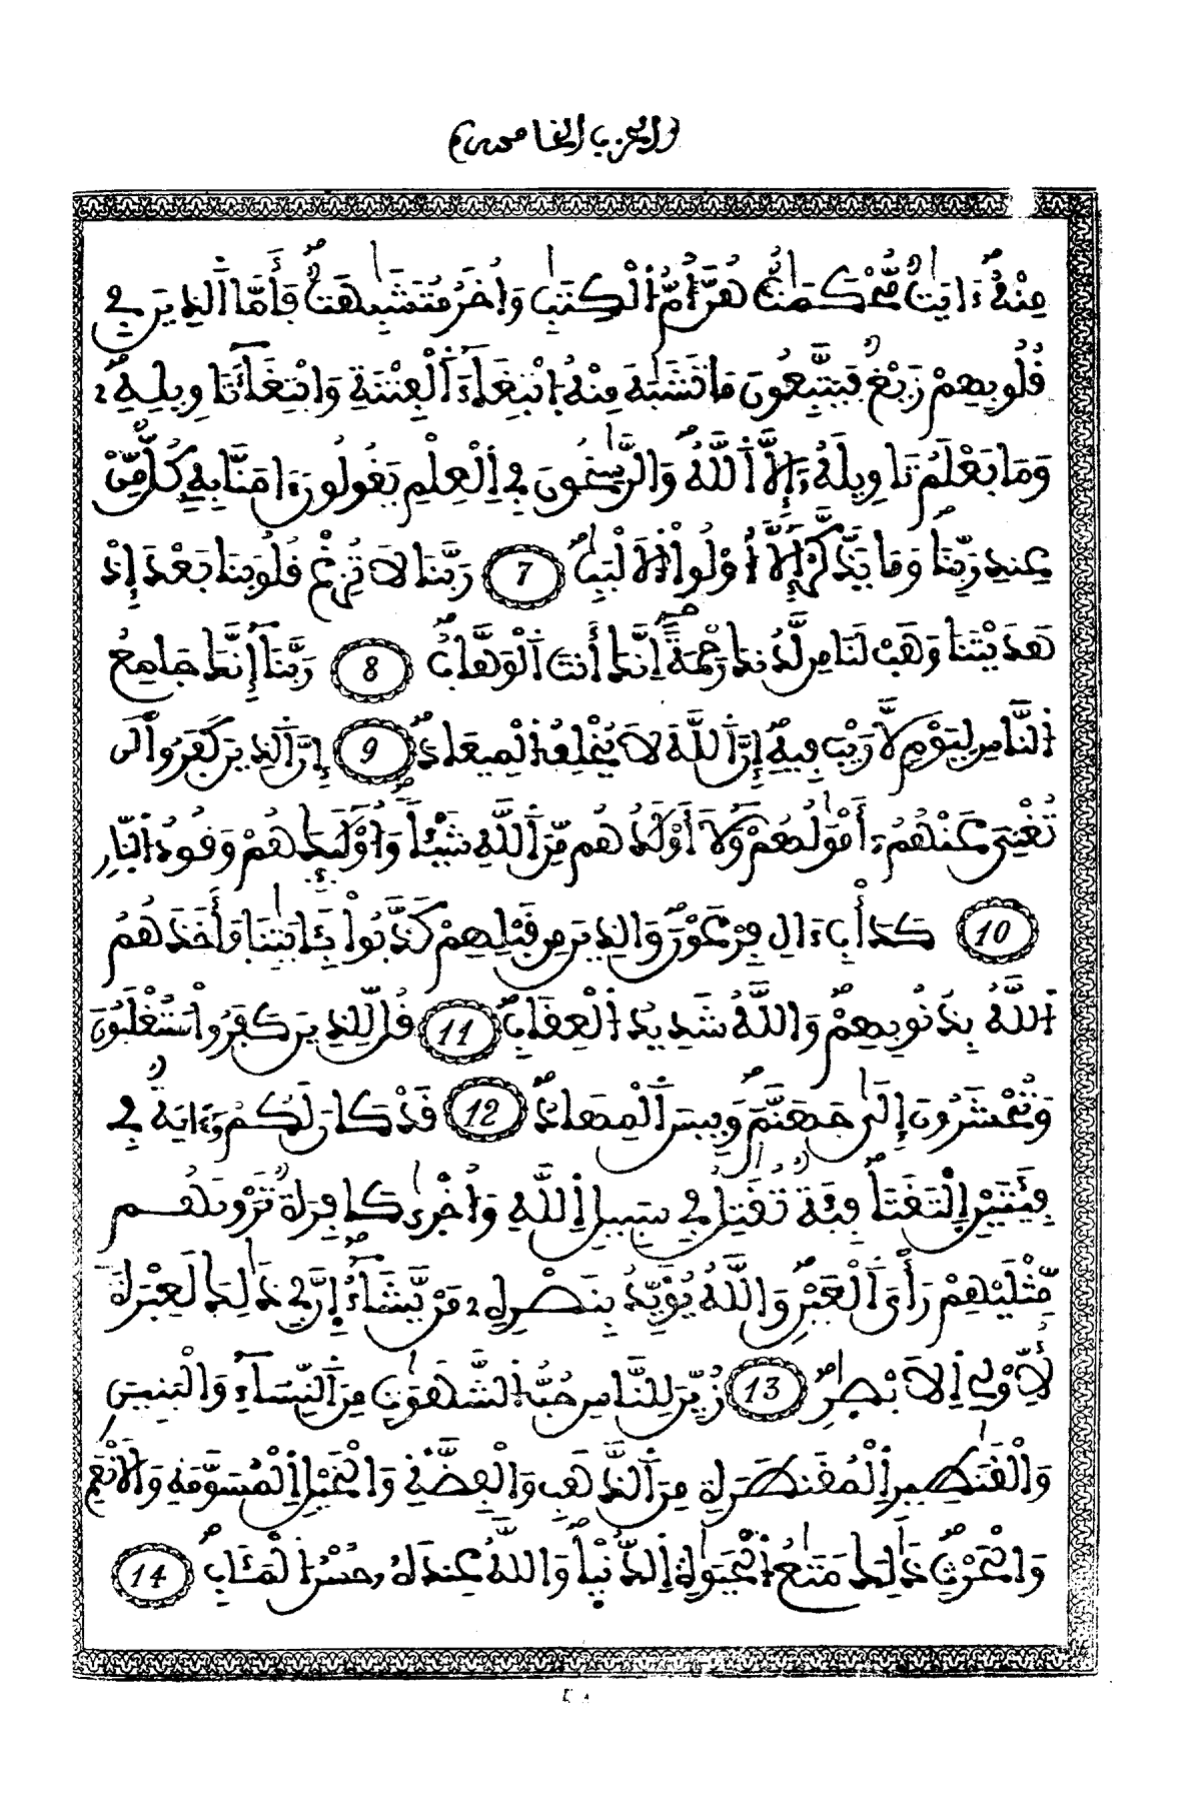 الحزب الخامس
مِنْهُ ءَايَٰتٌ مُّحْكَمَٰتٌ هُنَّ أُمُّ اُ۬لْكِتَٰبِ وَأُخَرُ مُتَشَٰبِهَٰتٌۖ فَأَمَّا اَ۬لذِينَ فِے
قُلُوبِهِمْ زَيْغٌ فَيَتَّبِعُونَ مَا تَشَٰبَهَ مِنْهُ اُ۪بْتِغَآءَ اَ۬لْفِتْنَةِ وَابْتِغَآءَ تَاوِيلِهِۦۖ
وَمَا يَعْلَمُ تَاوِيلَهُۥٓ إِلَّا اَ۬للَّهُۖ وَالرَّٰسِخُونَ فِے اِ۬لْعِلْمِ يَقُولُونَ ءَامَنَّا بِهِۦ كُلٌّ مِّنْ
عِندِ رَبِّنَاۖ وَمَا يَذَّكَّرُ إِلَّآ أُوْلُواْ اُ۬لَالْبَٰبِۖ 7 رَبَّنَا لَا تُزِغْ قُلُوبَنَا بَعْدَ إِذْ
هَدَيْتَنَا وَهَبْ لَنَا مِن لَّدُنكَ رَحْمَةًۖ اِنَّكَ أَنتَ اَ۬لْوَهَّابُۖ 8 رَبَّنَآ إِنَّكَ جَامِعُ
اُ۬لنَّاسِ لِيَوْمٖ لَّا رَيْبَ فِيهِۖ إِنَّ اَ۬للَّهَ لَا يُخْلِفُ اُ۬لْمِيعَادَۖ 9 إِنَّ اَ۬لذِينَ كَفَرُواْ لَن
تُغْنِيَ عَنْهُمُۥٓ أَمْوَٰلُهُمْ وَلَآ أَوْلَٰدُهُم مِّنَ اَ۬للَّهِ شَيْـٔاًۖ وَأُوْلَٰٓئِكَ هُمْ وَقُودُ اُ۬لنّ۪ارِ
10 كَدَأْبِ ءَالِ فِرْعَوْنَۖ وَالذِينَ مِن قَبْلِهِمْ كَذَّبُواْ بِـَٔايَٰتِنَا فَأَخَذَهُمُ
اُ۬للَّهُ بِذُنُوبِهِمْۖ وَاللَّهُ شَدِيدُ اُ۬لْعِقَابِۖ 11 قُل لِّلذِينَ كَفَرُواْ سَتُغْلَبُونَ
وَتُحْشَرُونَ إِلَىٰ جَهَنَّمَۖ وَبِيسَ اَ۬لْمِهَادُۖ 12 قَدْ كَانَ لَكُمُۥٓ ءَايَةٞ فِے
فِئَتَيْنِ اِ۪لْتَقَتَاۖ فِئَةٞ تُقَٰتِلُ فِے سَبِيلِ اِ۬للَّهِ وَأُخْر۪ىٰ كَافِرَةٞ تَرَوْنَهُم
مِّثْلَيْهِمْ رَأْيَ اَ۬لْعَيْنِۖ وَاللَّهُ يُؤَيِّدُ بِنَصْرِهِۦ مَنْ يَّشَآءُۖ اِنَّ فِے ذَٰلِكَ لَعِبْرَةٗ
لِّأُوْلِے اِ۬لَابْصٰ۪رِۖ 13 زُيِّنَ لِلنَّاسِ حُبُّ اُ۬لشَّهَوَٰتِ مِنَ اَ۬لنِّسَآءِ وَالْبَنِينَ
وَالْقَنَٰطِيرِ اِ۬لْمُقَنطَرَةِ مِنَ اَ۬لذَّهَبِ وَالْفِضَّةِ وَالْخَيْلِ اِ۬لْمُسَوَّمَةِ وَالَانْعَٰمِ
وَالْحَرْثِۖ ذَٰلِكَ مَتَٰعُ اُ۬لْحَيَوٰةِ اِ۬لدُّنْي۪اۖ وَاللَّهُ عِندَهُۥ حُسْنُ اُ۬لْمَـَٔابِۖ 14